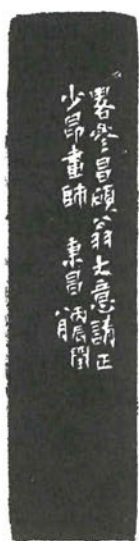 畧參昌碩翁大意請正
少昂畫師 秉昌 丙辰閏
八月